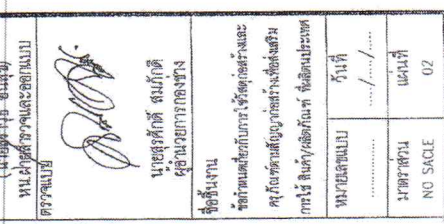 หน.ฝ่ายสำรวจและออกแบบ
ตรวจแบบ
นายสุรศักดิ์ สมภักดี
ผู้อำนวยการกองช่าง
ชื่อชิ้นงาน
ข้อกำหนดเกี่ยวกับการใช้วัสดุก่อสร้างและ
ครุภัณฑ์ตามสัญญาก่อสร้างเพื่อส่งเสริม
การใช้ สินค้า/ผลิตภัณฑ์ ที่ผลิตในประเทศ
หมายเลขแบบ วันที่
............... ..../..../....
มาตราส่วน แผ่นที่
NO SACLE 02